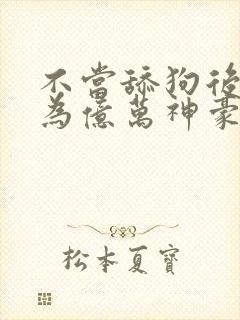 不當舔狗後
為億萬神豪
松本夏寶